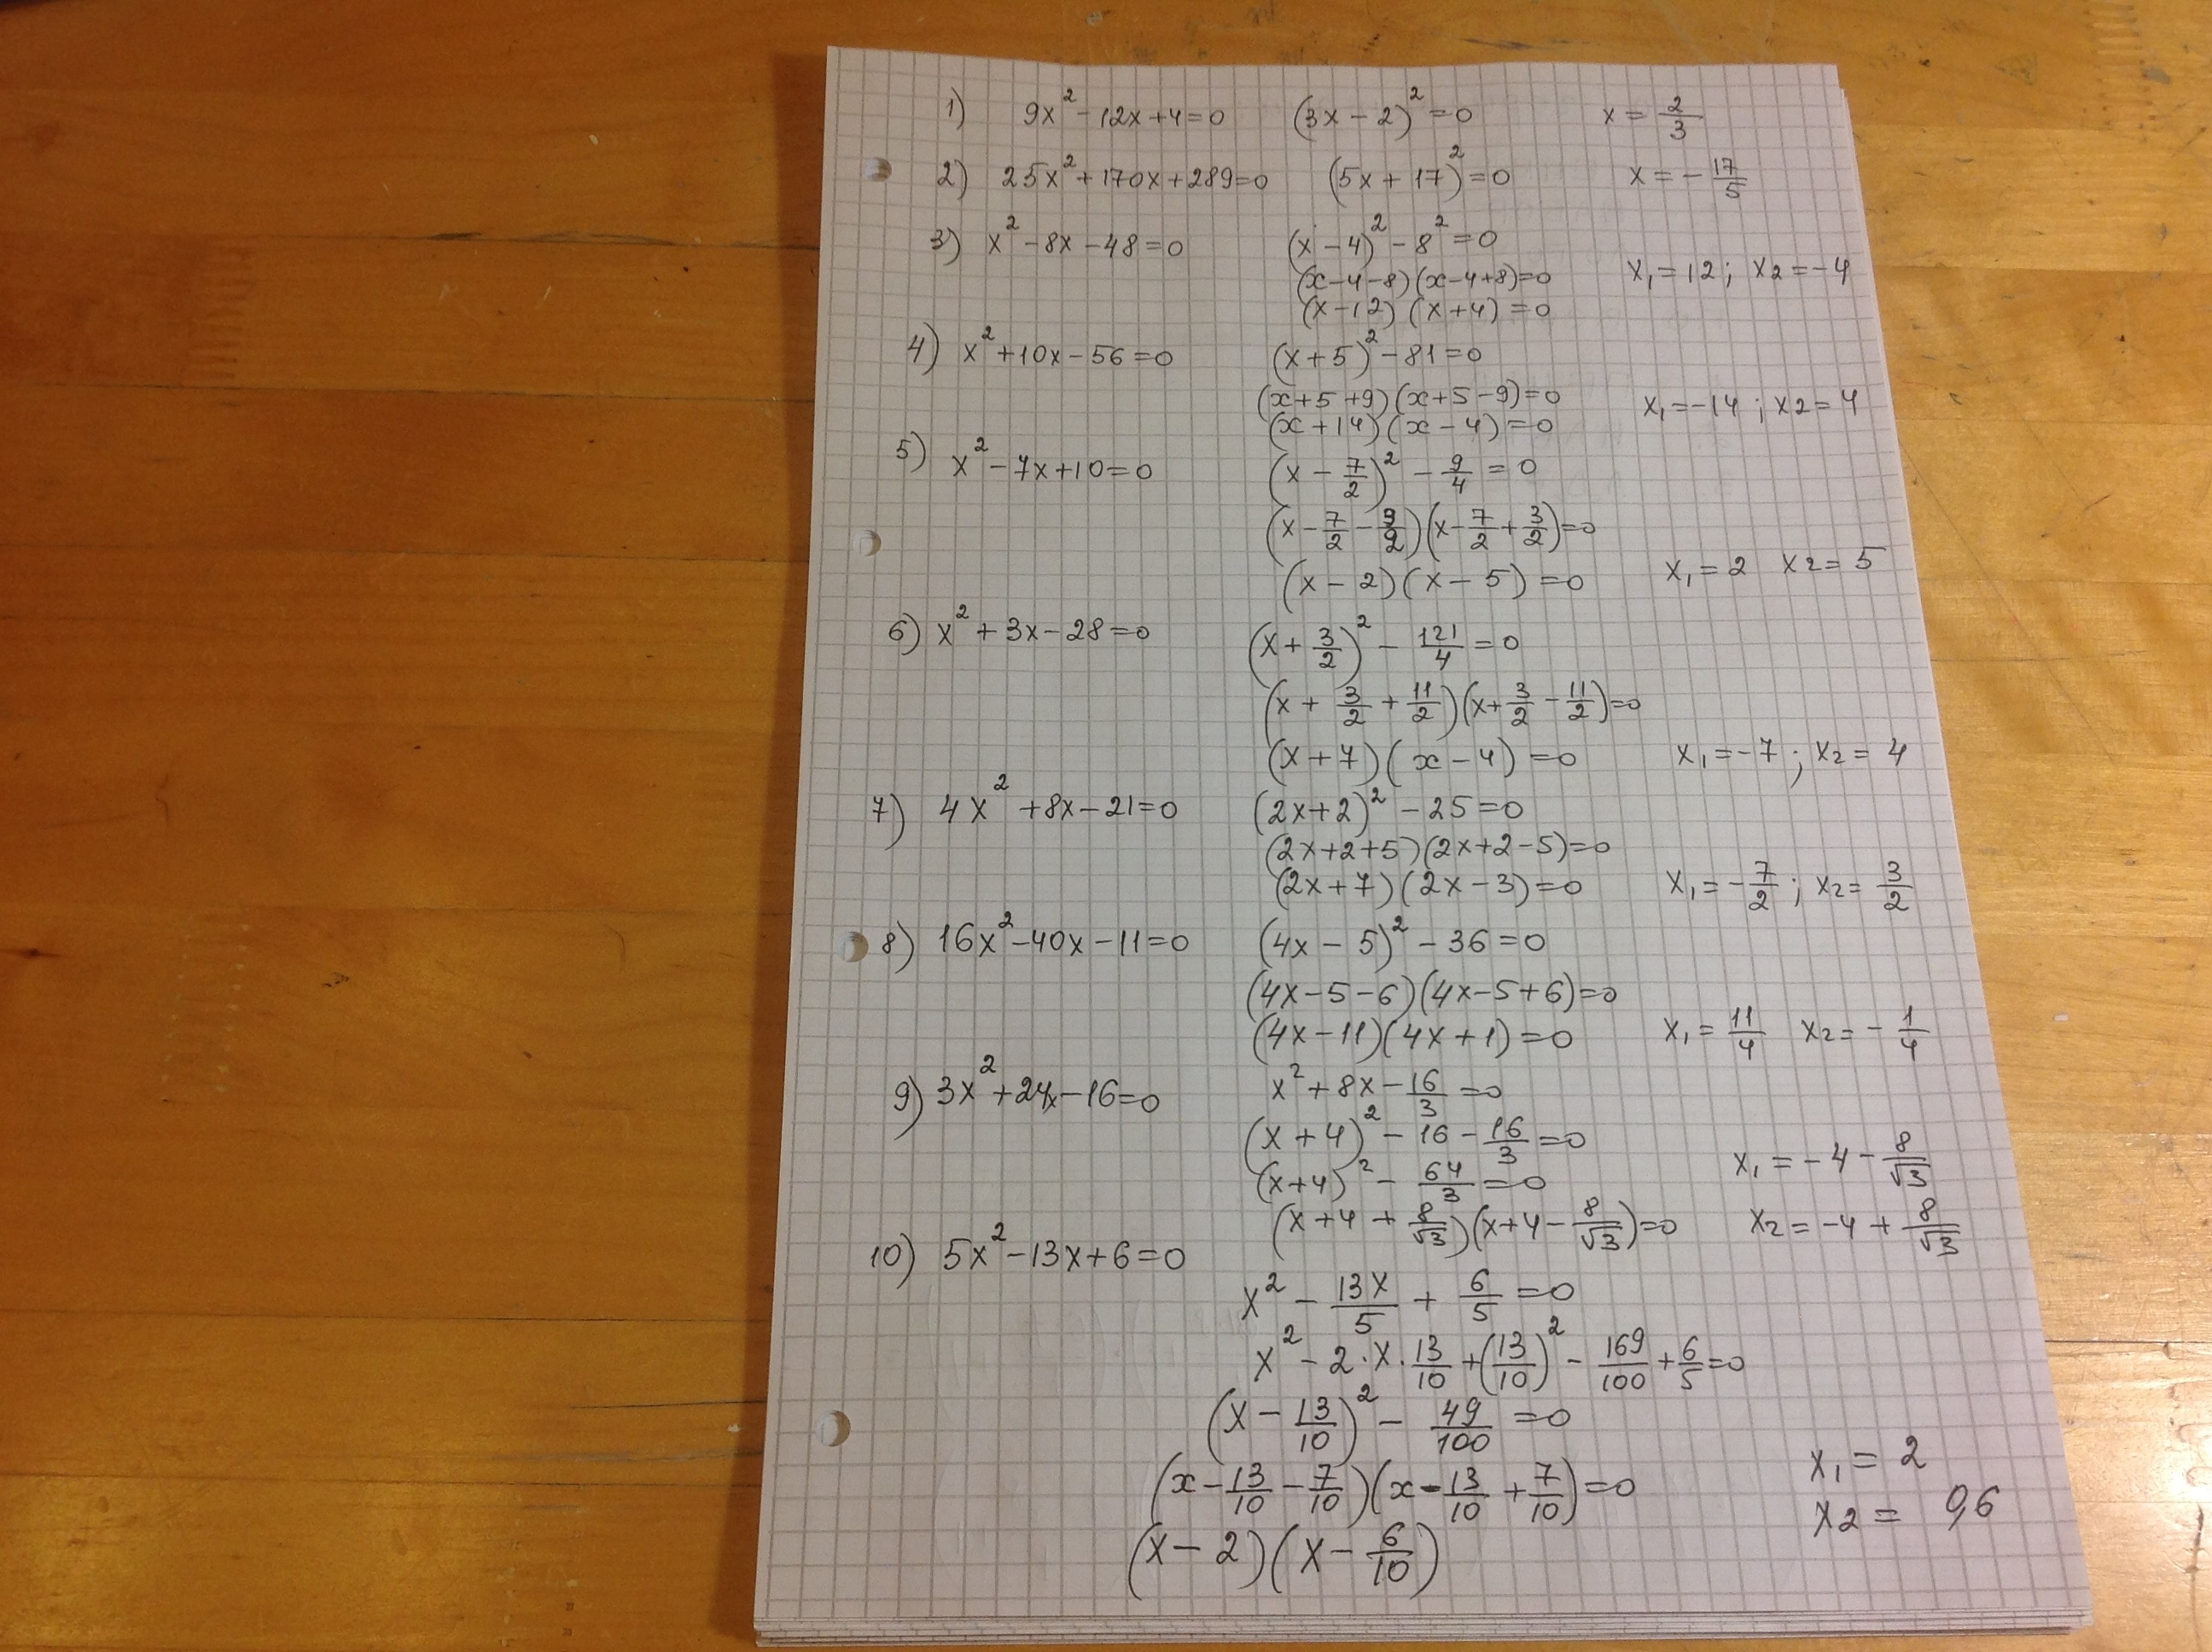 1) 9x² - 12x + 4 = 0 (3x - 2)² = 0 x = 2/3
2) 25x² + 170x + 289 = 0 (5x + 17)² = 0 x = - 17/5
3) x² - 8x - 48 = 0 (x - 4)² - 8² = 0
(x - 4 - 8)(x - 4 + 8) = 0 x₁ = 12; x₂ = -4
(x - 12)(x + 4) = 0
4) x² + 10x - 56 = 0 (x + 5)² - 81 = 0
(x + 5 + 9)(x + 5 - 9) = 0 x₁ = -14; x₂ = 4
(x + 14)(x - 4) = 0
5) x² - 7x + 10 = 0 (x - 7/2)² - 9/4 = 0
(x - 7/2 - 3/2)(x - 7/2 + 3/2) = 0
(x - 2)(x - 5) = 0 x₁ = 2 x₂ = 5
6) x² + 3x - 28 = 0 (x + 3/2)² - 121/4 = 0
(x + 3/2 + 11/2)(x + 3/2 - 11/2) = 0
(x + 7)(x - 4) = 0 x₁ = -7; x₂ = 4
7) 4x² + 8x - 21 = 0 (2x + 2)² - 25 = 0
(2x + 2 + 5)(2x + 2 - 5) = 0
(2x + 7)(2x - 3) = 0 x₁ = - 7/2; x₂ = 3/2
8) 16x² - 40x - 11 = 0 (4x - 5)² - 36 = 0
(4x - 5 - 6)(4x - 5 + 6) = 0
(4x - 11)(4x + 1) = 0 x₁ = 11/4 x₂ = - 1/4
9) 3x² + 24x - 16 = 0 x² + 8x - 16/3 = 0
(x + 4)² - 16 - 16/3 = 0
(x + 4)² - 64/3 = 0 x₁ = -4 - 8/√3
(x + 4 + 8/√3)(x + 4 - 8/√3) = 0 x₂ = -4 + 8/√3
10) 5x² - 13x + 6 = 0
x² - 13x/5 + 6/5 = 0
x² - 2·x·13/10 + (13/10)² - 169/100 + 6/5 = 0
(x - 13/10)² - 49/100 = 0
(x - 13/10 - 7/10)(x - 13/10 + 7/10) = 0 x₁ = 2
(x - 2)(x - 6/10) x₂ = 0,6